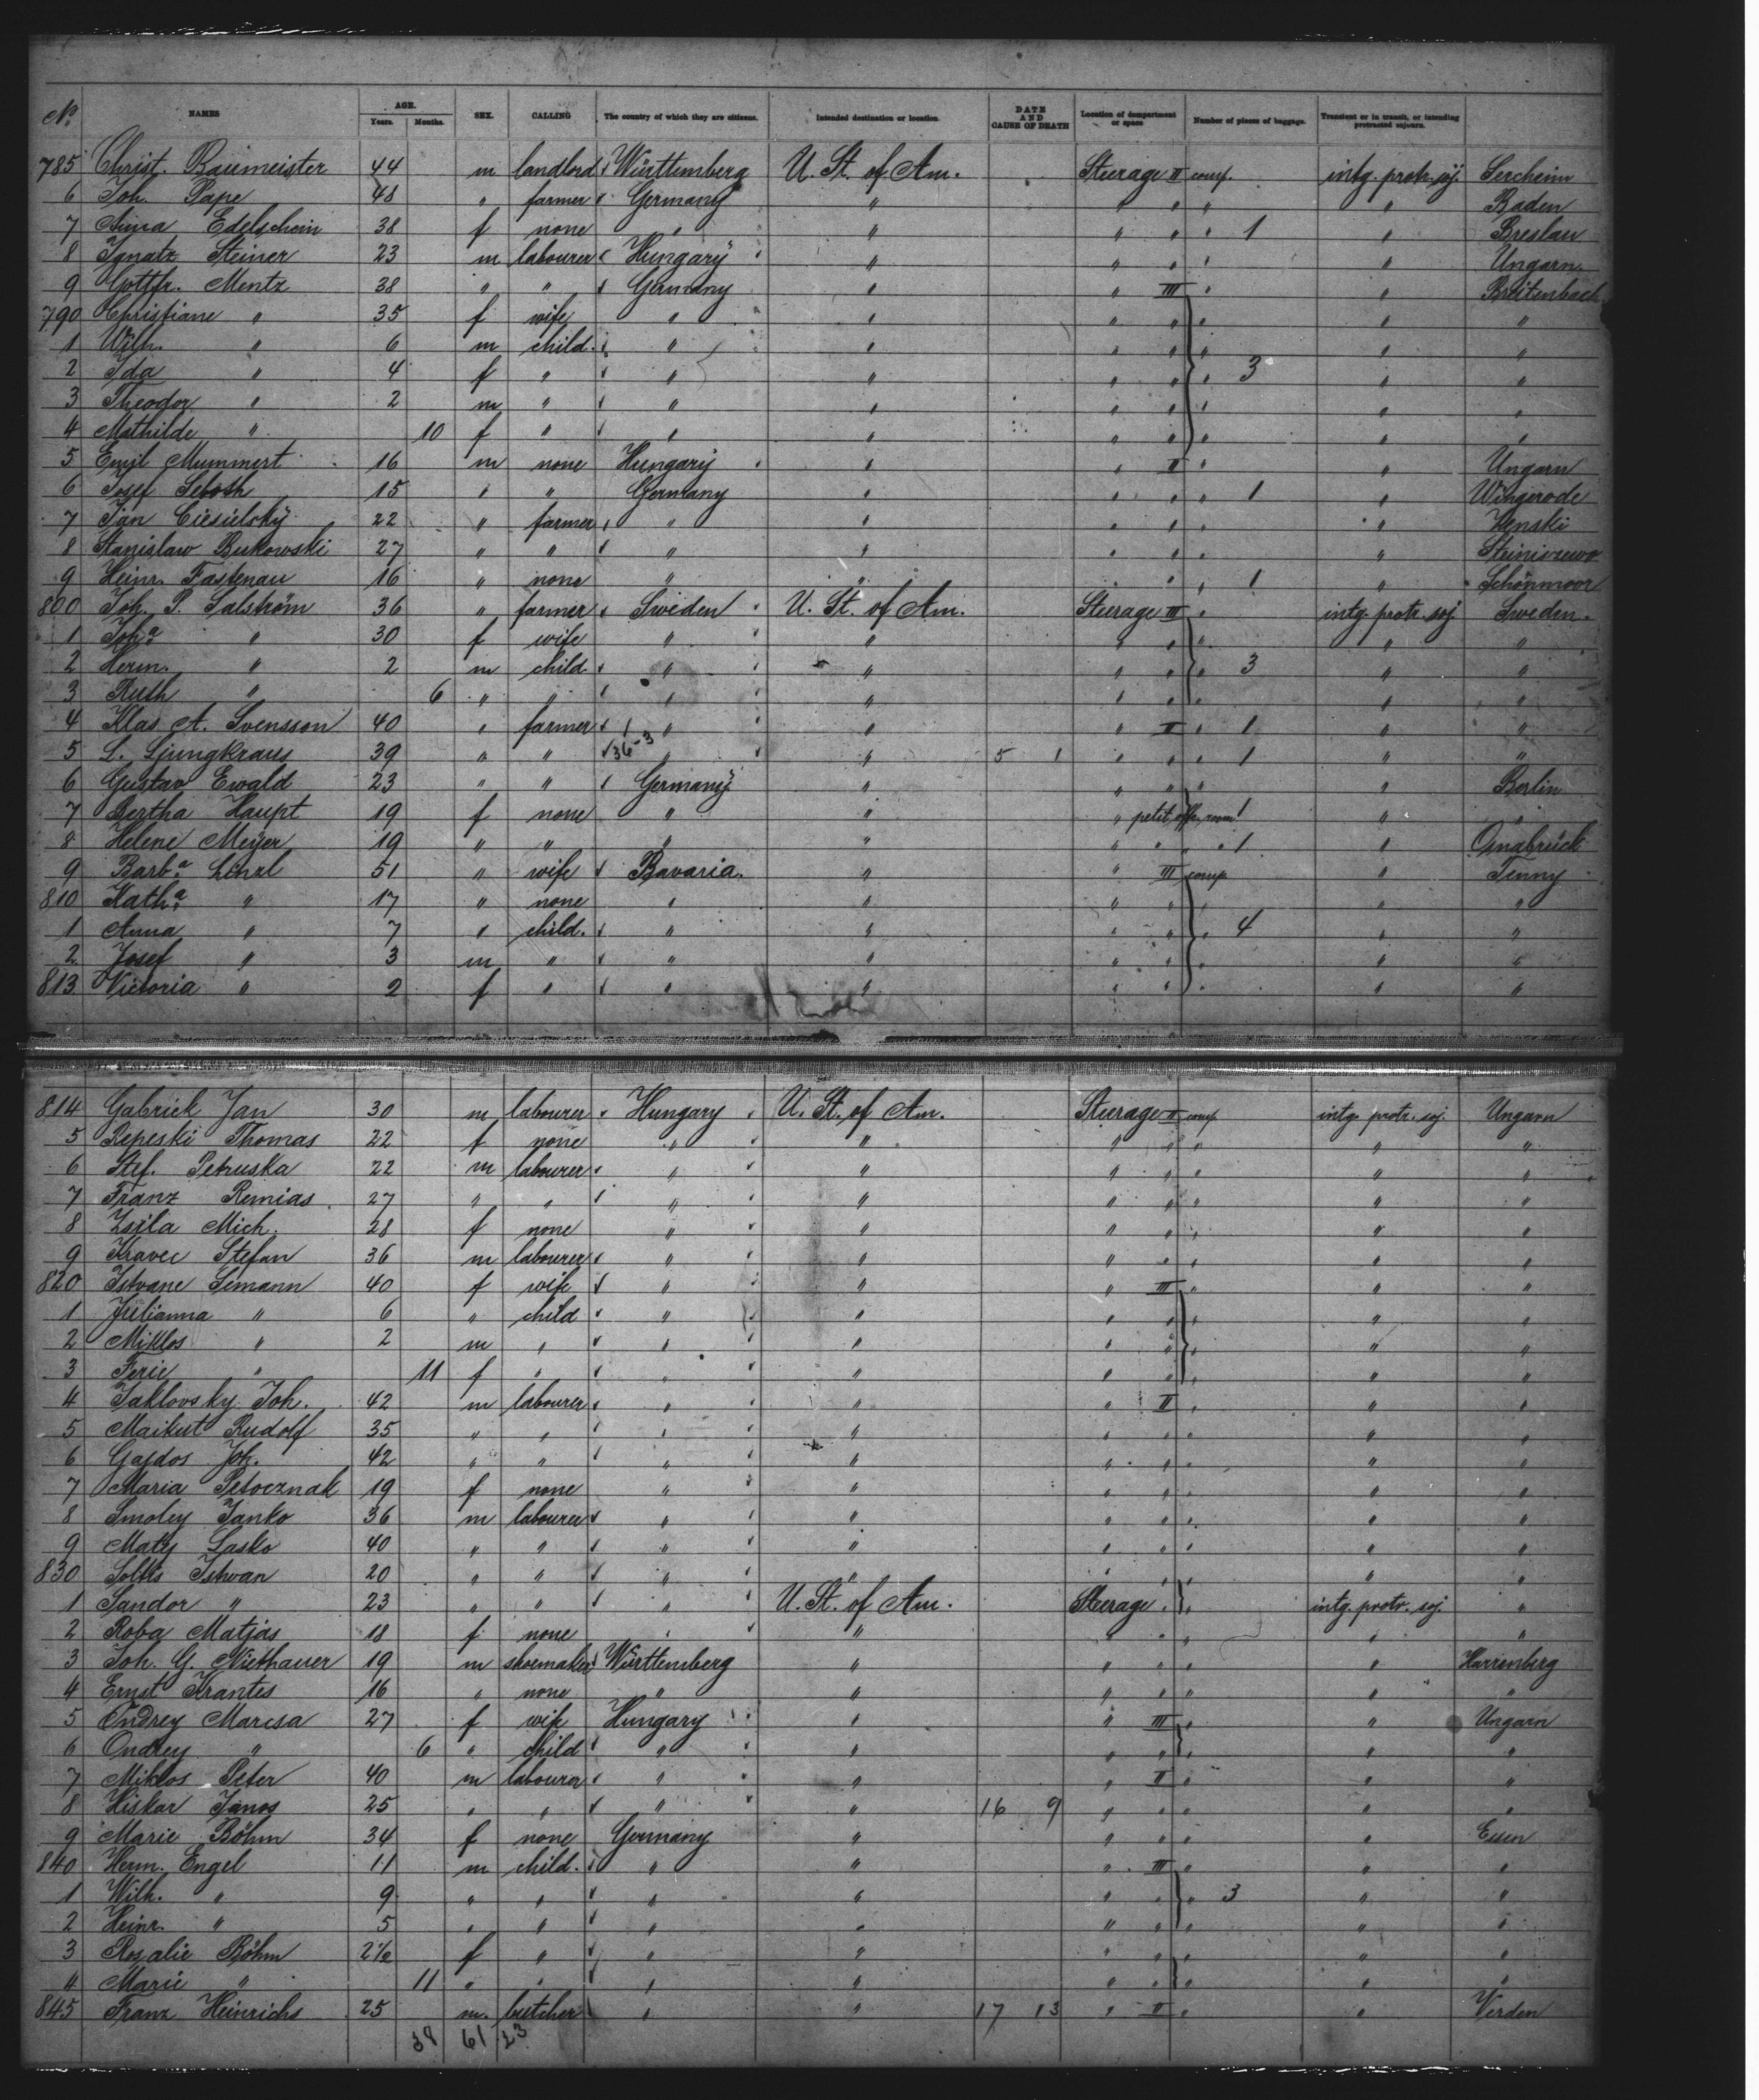 No. NAMES AGE. Years. Months. SEX. CALLING The country of which they are citizens. Intended destination or location. DATE AND CAUSE OF DEATH Location of compartment or space Number of pieces of baggage. Transient or in transit, or intending protracted sojourn.
785 Christ. Baumeister 44 m landlord Württemberg U. St. of Am. Steerage II comp. intg. protr. soj. Sercheim
6 Joh. Pape 48 " farmer Germany " " " " " Baden
7 Anna Edelschein 38 f none " " " " " 1 " Breslau
8 Ignatz Steiner 23 m labourer Hungary " " " " " Ungarn
9 Gottfr. Mentz 38 " " Germany " " III " " Breitenbach
790 Christiane " 35 f wife " " " " " " "
1 Wilh. " 6 m child. " " " " " " "
2 Ida " 4 f " " " " " " 3 " "
3 Theodor " 2 m " " " " " " " "
4 Mathilde " 10 f " " " " " " " "
5 Emil Mummert 16 m none Hungary " " II " " Ungarn
6 Josef 15 " " Germany " " " " 1 " Wingerode
7 Jan Ciesielsky 22 " farmer " " " " " " Kenski
8 Stanislaw Bukowski 27 " " " " " " " "
9 Heinr. Fastenau 16 " none " " " " " 1 " Schönmoor
800 Joh. P. Salström 36 " farmer Sweden U. St. of Am. Steerage III " intg. protr. soj. Sweden.
1 Joha. " 30 f wife " " " " " " "
2 Herm. " 2 m child " " " " " 3 " "
3 Ruth " 6 " " " " " " " " "
4 Klas A. Svensson 40 " farmer " " " II " 1 " "
5 L. Ljungkraus 39 " " 36-3 " " 5 1 " " " 1 " "
6 Gustav Ewald 23 " " Germany " " " " " Berlin
7 Bertha Haupt 19 f none " " " petit off. room 1 " "
8 Helene Meyer 19 " " " " " " " 1 " Osnabrück
9 Barba. Lenzl 51 " wife Bavaria. " " III comp " Tenny
810 Katha. " 17 " none " " " " " " "
1 Anna " 7 " child. " " " " " 4 " "
2 Josef " 3 m " " " " " " " "
813 Victoria " 2 f " " " " " " " "
814 Gabrick Jan 30 m labourer Hungary U. St. of Am. Steerage II comp. intg. protr. soj. Ungarn
5 Repeski Thomas 22 f none " " " " " " "
6 Stef. Petruska 22 m labourer " " " " " " "
7 Franz Remias 27 " " " " " " " " "
8 Zsila Mich. 28 f none " " " " " " "
9 Kravec Stefan 36 m labourer " " " " " " "
820 Istvane Simann 40 f wife " " " III " " "
1 Julianna " 6 " child " " " " " " "
2 Miklos " 2 m " " " " " " " "
3 Ferie " 11 f " " " " " " "
4 Jaklovsky Joh. 42 m labourer " " " II " " "
5 Maikut Rudolf 35 " " " " " " " " "
6 Gajdos Joh. 42 " " " " " " " " "
7 Maria Petocznak 19 f none " " " " " " "
8 Smoley Janko 36 m labourer " " " " " " "
9 Maty Lasko 40 " " " " " " " " "
830 Soltis Istvan 20 " " " " " " " " "
1 Sandor " 23 " " " U. St. of Am. Steerage " " intg. protr. soj. "
2 Roba Matjas 18 f none " " " " " " "
3 Joh. G. Niethauer 19 m shoemaker Württemberg " " " " " Harrenberg
4 Ernst Krantes 16 " none " " " " " " "
5 Ondrey Marcsa 27 f wife Hungary " " III " " Ungarn
6 Ondrey " 6 " child " " " " " " "
7 Miklos Peter 40 m labourer " " " II " " "
8 Hiskar Janos 25 " " " " 16 9 " " " " "
9 Marie Böhm 34 f none Germany " " " " " Essen
840 Herm. Engel 11 m child. " " " III " " "
1 Wilh. " 9 " " " " " " " 3 " "
2 Heinr. " 5 " " " " " " " " "
3 Rosalie Böhm 2 1/2 f " " " " " " " "
4 Marie " 11 " " " " " " " " "
845 Franz Heinrichs 25 m. butcher " " 17 13 " II " " Verden
38 61 23